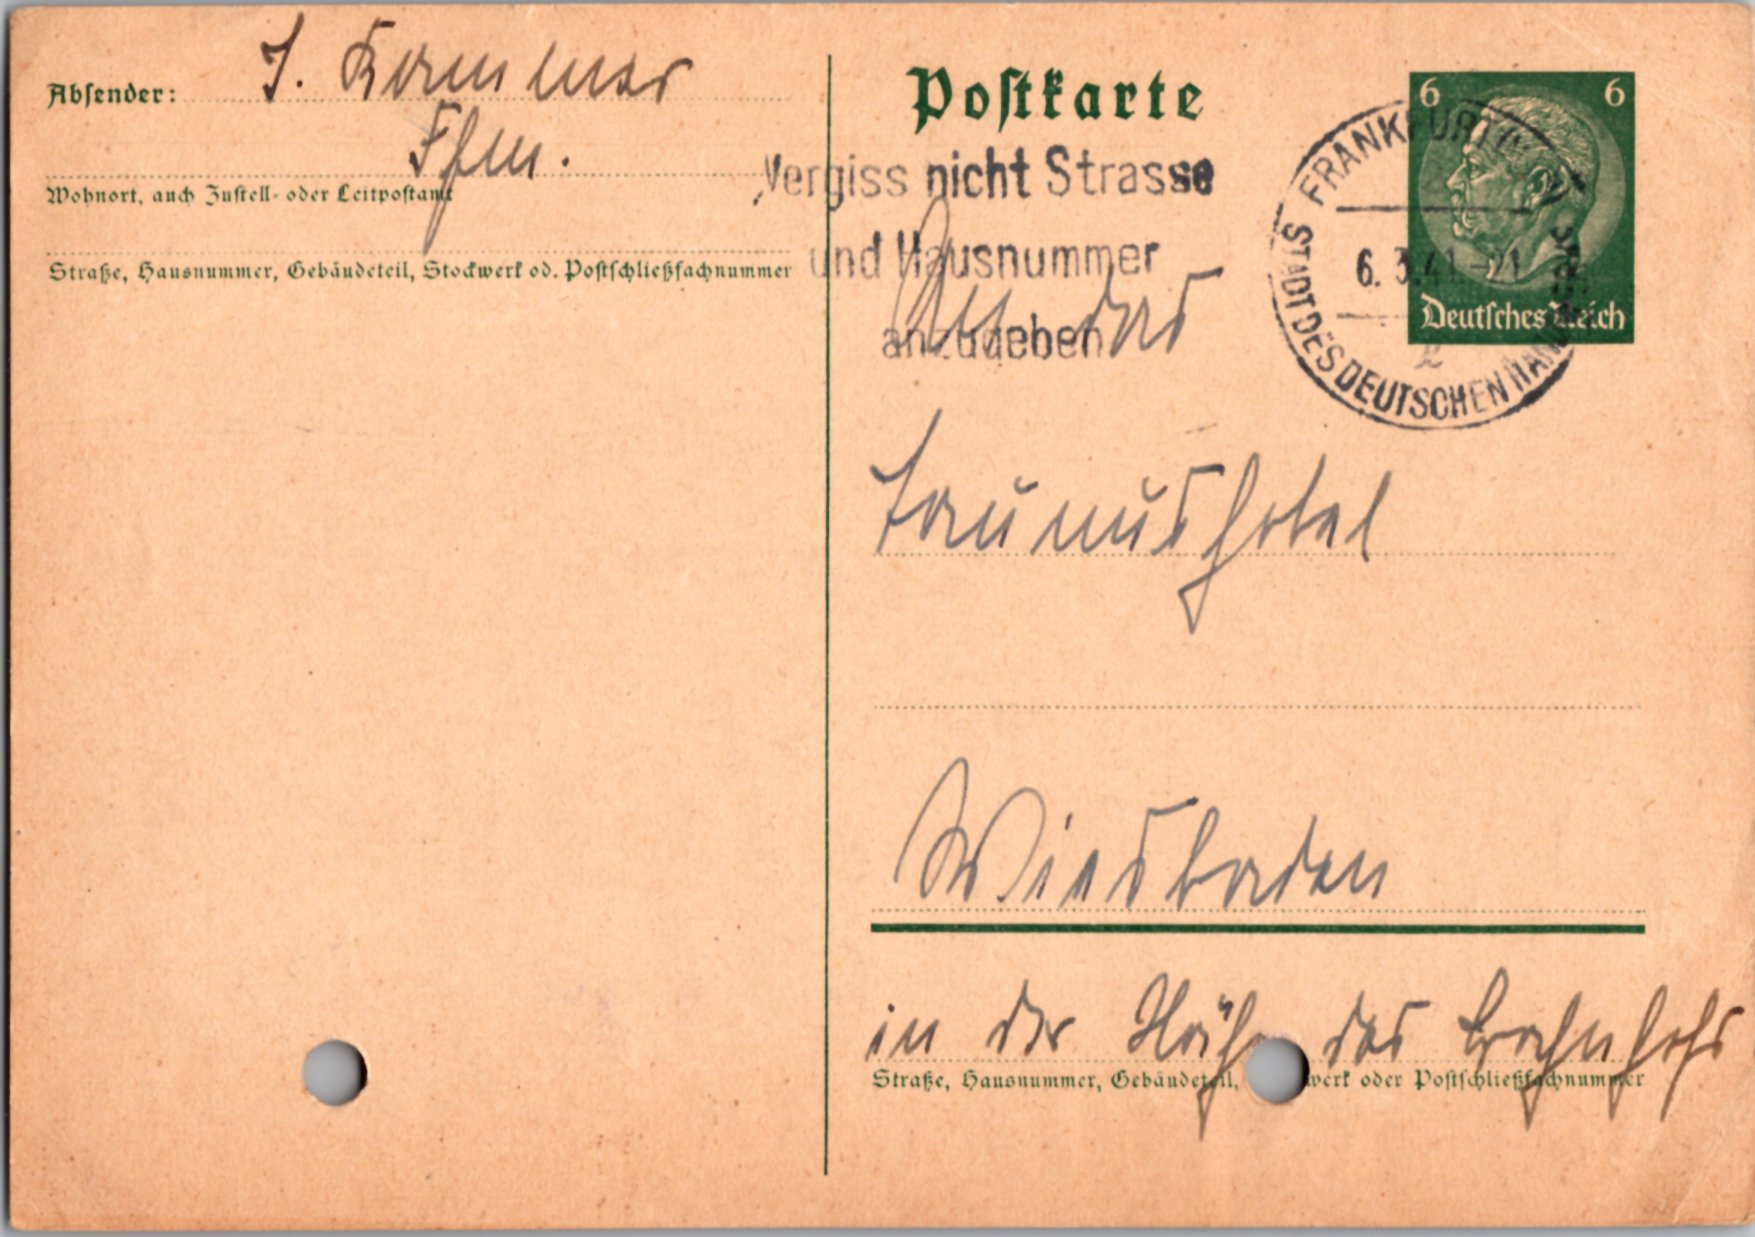 Absender: J. Kammer
Ffm.
Wohnort, auch Zustell- oder Leitpostamt
Straße, Hausnummer, Gebäudeteil, Stockwerk od. Postschließfachnummer
Postkarte
Vergiss nicht Strasse
und Hausnummer
anzugeben
6 6
Deutsches Reich
FRANKFURT
6.3.41.-21
STADT DES DEUTSCHEN HAND
An das
Taunushotel
Wiesbaden
in der Nähe des Bahnhofs
Straße, Hausnummer, Gebäudeteil, werk oder Postschließfachnummer